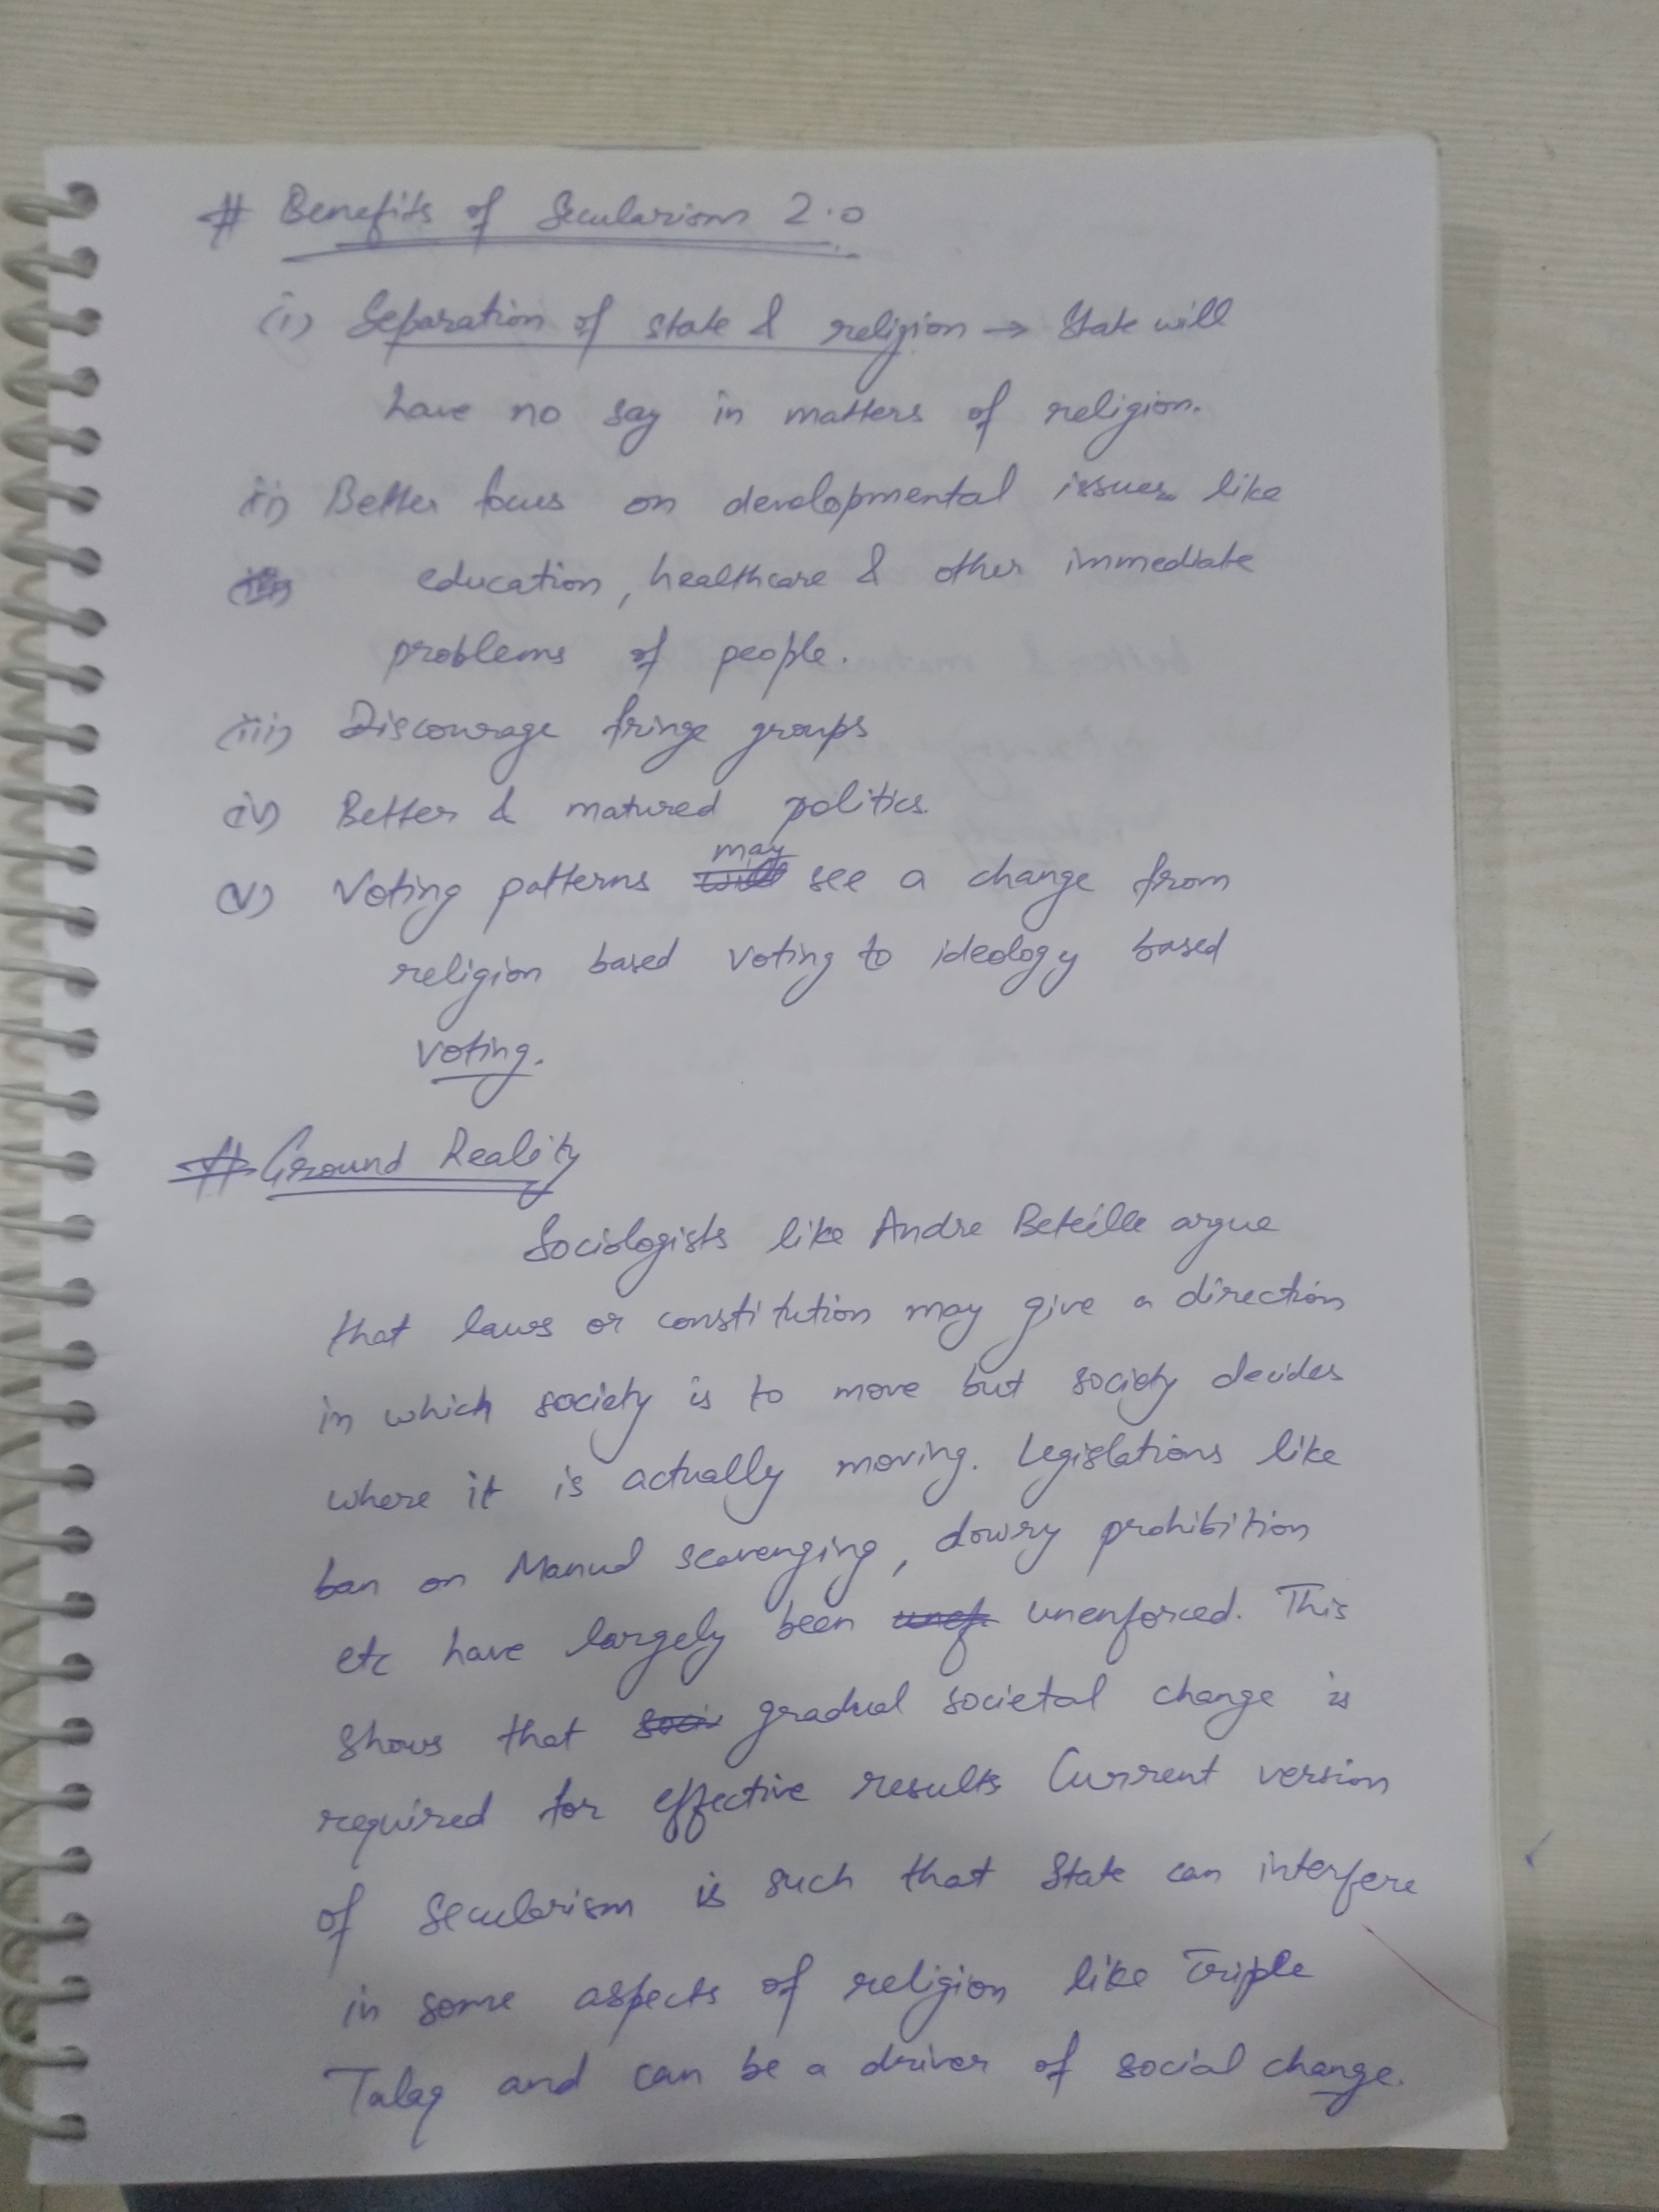 # Benefits of Secularism 2.0
(i) Separation of state & religion → State will
have no say in matters of religion.
ii) Better focus on developmental issues like
education, healthcare & other immediate
problems of people.
(iii) Discourage fringe groups
(iv) Better & matured politics.
(v) Voting patterns may see a change from
religion based voting to ideology based
voting.
# Ground Reality
Sociologists like Andre Beteille argue
that laws or constitution may give a direction
in which society is to move but society decides
where it is actually moving. Legislations like
ban on Manual scavenging, dowry prohibition
etc have largely been unenforced. This
shows that gradual societal change is
required for effective results Current version
of Secularism is such that State can interfere
in some aspects of religion like Triple
Talaq and can be a driver of social change.